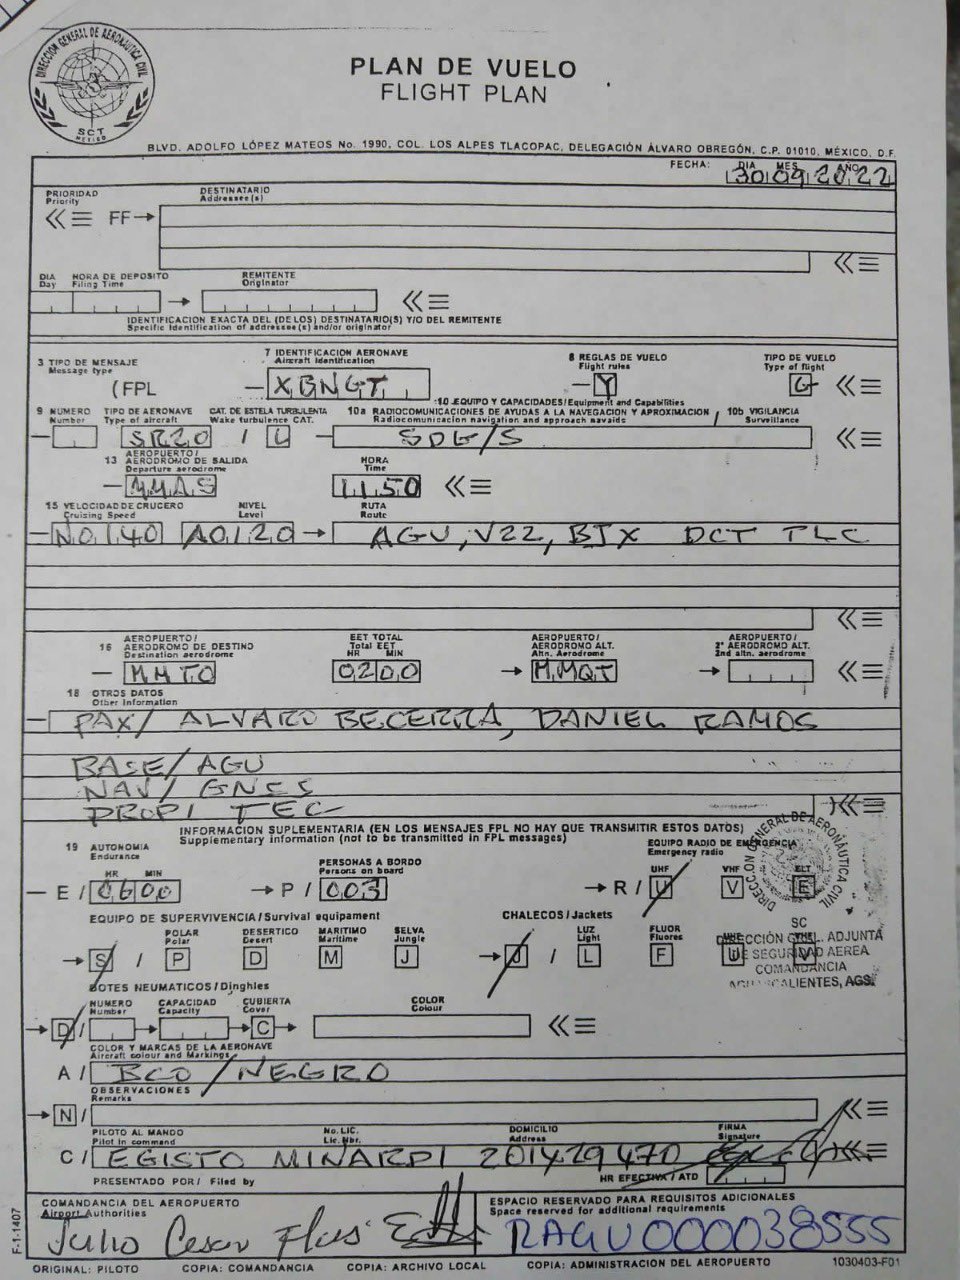 DIRECCION GENERAL DE AERONAUTICA CIVIL
SCT
MEXICO
PLAN DE VUELO
FLIGHT PLAN
BLVD. ADOLFO LÓPEZ MATEOS No. 1990, COL. LOS ALPES TLACOPAC, DELEGACIÓN ÁLVARO OBREGÓN, C.P. 01010, MÉXICO, D.F.
FECHA: DIA MES AÑO
30 09 2022
PRIORIDAD DESTINATARIO
Priority Addressee(s)
FF
DIA HORA DE DEPOSITO REMITENTE
Day Filing Time Originator
IDENTIFICACION EXACTA DEL (DE LOS) DESTINATARIO(S) Y/O DEL REMITENTE
Specific Identification of addressee(s) and/or originator
3 TIPO DE MENSAJE 7 IDENTIFICACION AERONAVE 8 REGLAS DE VUELO TIPO DE VUELO
Message type Aircraft Identification Flight rules Type of flight
(FPL - XBNGT - Y G
10 EQUIPO Y CAPACIDADES/Equipment and Capabilities
9 NUMERO TIPO DE AERONAVE CAT. DE ESTELA TURBULENTA 10a RADIOCOMUNICACIONES DE AYUDAS A LA NAVEGACION Y APROXIMACION 10b VIGILANCIA
Number Type of aircraft Wake turbulence CAT. Radiocomunication navigation and approach navaids Surveillance
- SR20 / L - SDG/S
13 AEROPUERTO/ AERODROMO DE SALIDA HORA
Departure aerodrome Time
- MMAS 1150
15 VELOCIDAD DE CRUCERO NIVEL RUTA
Cruising Speed Level Route
- N0140 A0120 AGU, V22, BJX DCT TLC
16 AEROPUERTO/ AERODROMO DE DESTINO EET TOTAL AEROPUERTO/ AERODROMO ALT. AEROPUERTO/ 2º AERODROMO ALT.
Destination aerodrome Total EET HR MIN Altn. Aerodrome 2nd altn. aerodrome
- MMTO 0200 MMQT
18 OTROS DATOS
Other Information
- PAX/ ALVARO BECERRA, DANIEL RAMOS
BASE/AGU
NAV/ GNSS
PROPI TEC
INFORMACION SUPLEMENTARIA (EN LOS MENSAJES FPL NO HAY QUE TRANSMITIR ESTOS DATOS)
Supplementary information (not to be transmitted in FPL messages)
19 AUTONOMIA PERSONAS A BORDO EQUIPO RADIO DE EMERGENCIA
Endurance Persons on board Emergency radio
HR MIN UHF VHF ELT
- E / 0600 P / 003 R / U V E
EQUIPO DE SUPERVIVENCIA/Survival equipament CHALECOS/Jackets
POLAR DESERTICO MARITIMO SELVA LUZ FLUOR UHF VHF
Polar Desert Maritime Jungle Light Fluores
S / P D M J J / L F U V
DIRECCIÓN GENERAL DE AERONÁUTICA CIVIL
SC
DIRECCIÓN GRAL. ADJUNTA
DE SEGURIDAD AEREA
COMANDANCIA
AGUASCALIENTES, AGS.
BOTES NEUMATICOS/Dinghles
NUMERO CAPACIDAD CUBIERTA COLOR
Number Capacity Cover Colour
D / C
COLOR Y MARCAS DE LA AERONAVE
Aircraft colour and Markings
A / BCO/NEGRO
OBSERVACIONES
Remarks
N /
PILOTO AL MANDO No. LIC. DOMICILIO FIRMA
Pilot in command Lic. Nbr. Address Signature
C / EGISTO MINARDI 201429470
PRESENTADO POR/ Filed by HR EFECTIVA/ATD
COMANDANCIA DEL AEROPUERTO ESPACIO RESERVADO PARA REQUISITOS ADICIONALES
Airport Authorities Space reserved for additional requirements
Julio Cesar RAGU000038555
F-1-1407
ORIGINAL: PILOTO COPIA: COMANDANCIA COPIA: ARCHIVO LOCAL COPIA: ADMINISTRACION DEL AEROPUERTO 1030403-F01